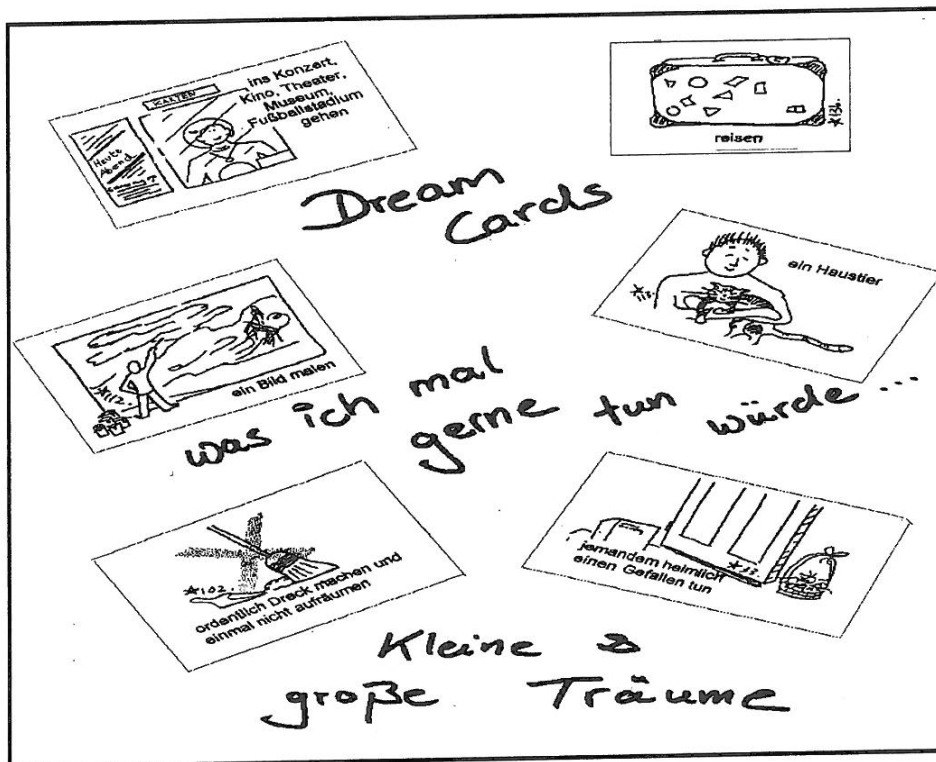 KARTEN
Heute
Abend
ins Konzert,
Kino, Theater,
Museum,
Fußballstadium
gehen
*136.
reisen
Dream
Cards
*113.
ein Haustier
*112.
ein Bild malen
was ich mal
gerne tun würde...
*102.
ordentlich Dreck machen und
einmal nicht aufräumen
*33.
jemandem heimlich
einen Gefallen tun
Kleine &
große Träume